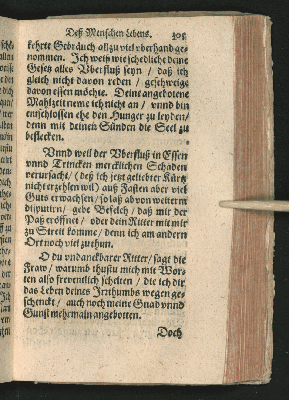 Deß Menschen Lebens. 305
kehrte Gebräuch allzu viel vberhand ge-
nommen. Ich weiß wie schedliche deine
Gesetz alles Vberfluß seyn / daß ich
gleich nicht davon reden / geschweige
davon essen möchte. Deine angebotene
Mahlzeit neme ich nicht an / vnnd bin
entschlossen ehe den Hunger zu leyden /
denn mit deinen Sünden die Seel zu
beflecken.
Vnnd weil der Vberfluß in Essen
vnnd Trincken mercklichen Schaden
verursacht / (deß ich jetzt geliebter Kürtz
nicht erzehlen wil) auß Fasten aber viel
Guts erwachsen / so laß ab von weiterm
disputirn / gebe Befelch / daß mir der
Paß eröffnet / oder dein Ritter mit mir
zu Streit komme / denn ich am andern
Ort noch viel zu thun.
O du vndanckbarer Ritter / sagt die
Fraw / warumb thustu mich mit Wor-
ten also freventlich schelten / die ich dir
das Leben deines Irrthumbs wegen ge-
schenckt / auch noch meine Gnad vnnd
Gunst mehrmaln angebotten.
Doch